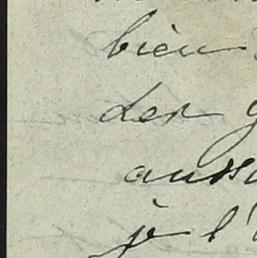 bien
der g
auss
je l'